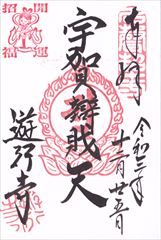 奉拝
令和三年
十二月廿五日
宇賀辨戝天
遊行寺
開運
招福